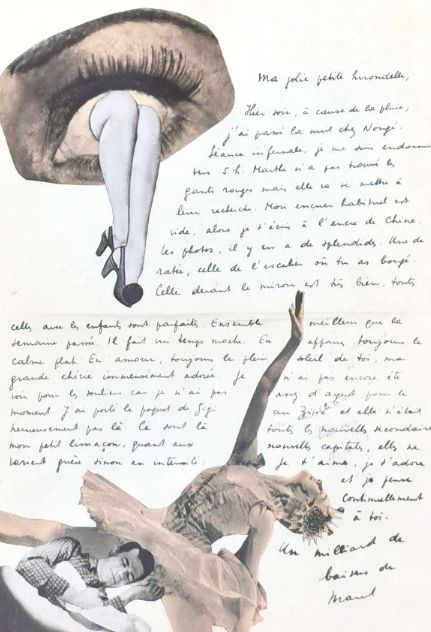 Ma jolie petite hirondelle,
Hier soir, à cause de la pluie,
j'ai passé la nuit chez Nougé.
Séance infernale, je me suis endormi
vers 5 h. Marthe n'a pas trouvé les
gants rouges mais elle va se mettre à
leur recherche. Mon encrier habituel est
vide, alors je t'écris à l'encre de Chine.
Les photos, il y en a de splendides. Une de
ratée, celle de l'escalier où tu as bougé.
Celle devant le miroir est très bien. toutes
celles avec les enfants sont parfaites. Ensemble meilleur que la
semaine passée. Il fait un temps moche. En affaires, toujours le
calme plat. En amour, toujours le plein soleil de toi, ma
grande chérie immensément adorée. Je n'ai pas encore été
voir pour les souliers car je n'ai pas assez d'argent pour le
moment. J'ai porté le paquet de au et elle n'était
heureusement pas là. Ce sont là toutes les nouvelles secondaires
mon petit limaçon, quant aux nouvelles capitales, elles ne
varient guère sinon en intensité : Je t'aime, je t'adore
et je pense
continuellement
à toi.
Un milliard de
baisers de